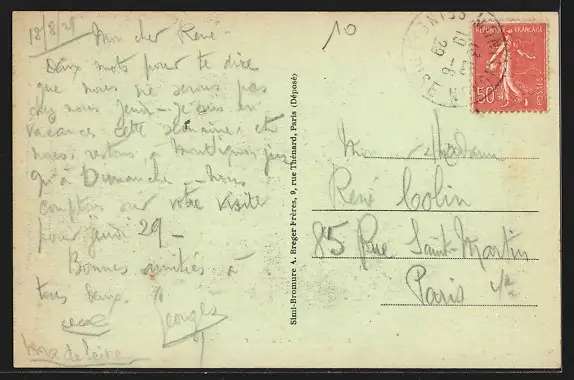 18/8/29 Mon cher René -
Deux mots pour te dire
que nous ne serons pas
chez nous Jeudi - je suis en
vacances cette semaine et
nous restons à
qu'à Dimanche - Nous
comptons sur votre visite
pour jeudi 29 -
Bonnes amitiés à
tous deux.
Georges
10
RÉPUBLIQUE FRANÇAISE
50
POSTES
Simi-Bromure A. Breger Frères, 9, rue Thénard, Paris (Déposé)
Mon Madame
René Colin
85 Rue Saint-Martin
Paris